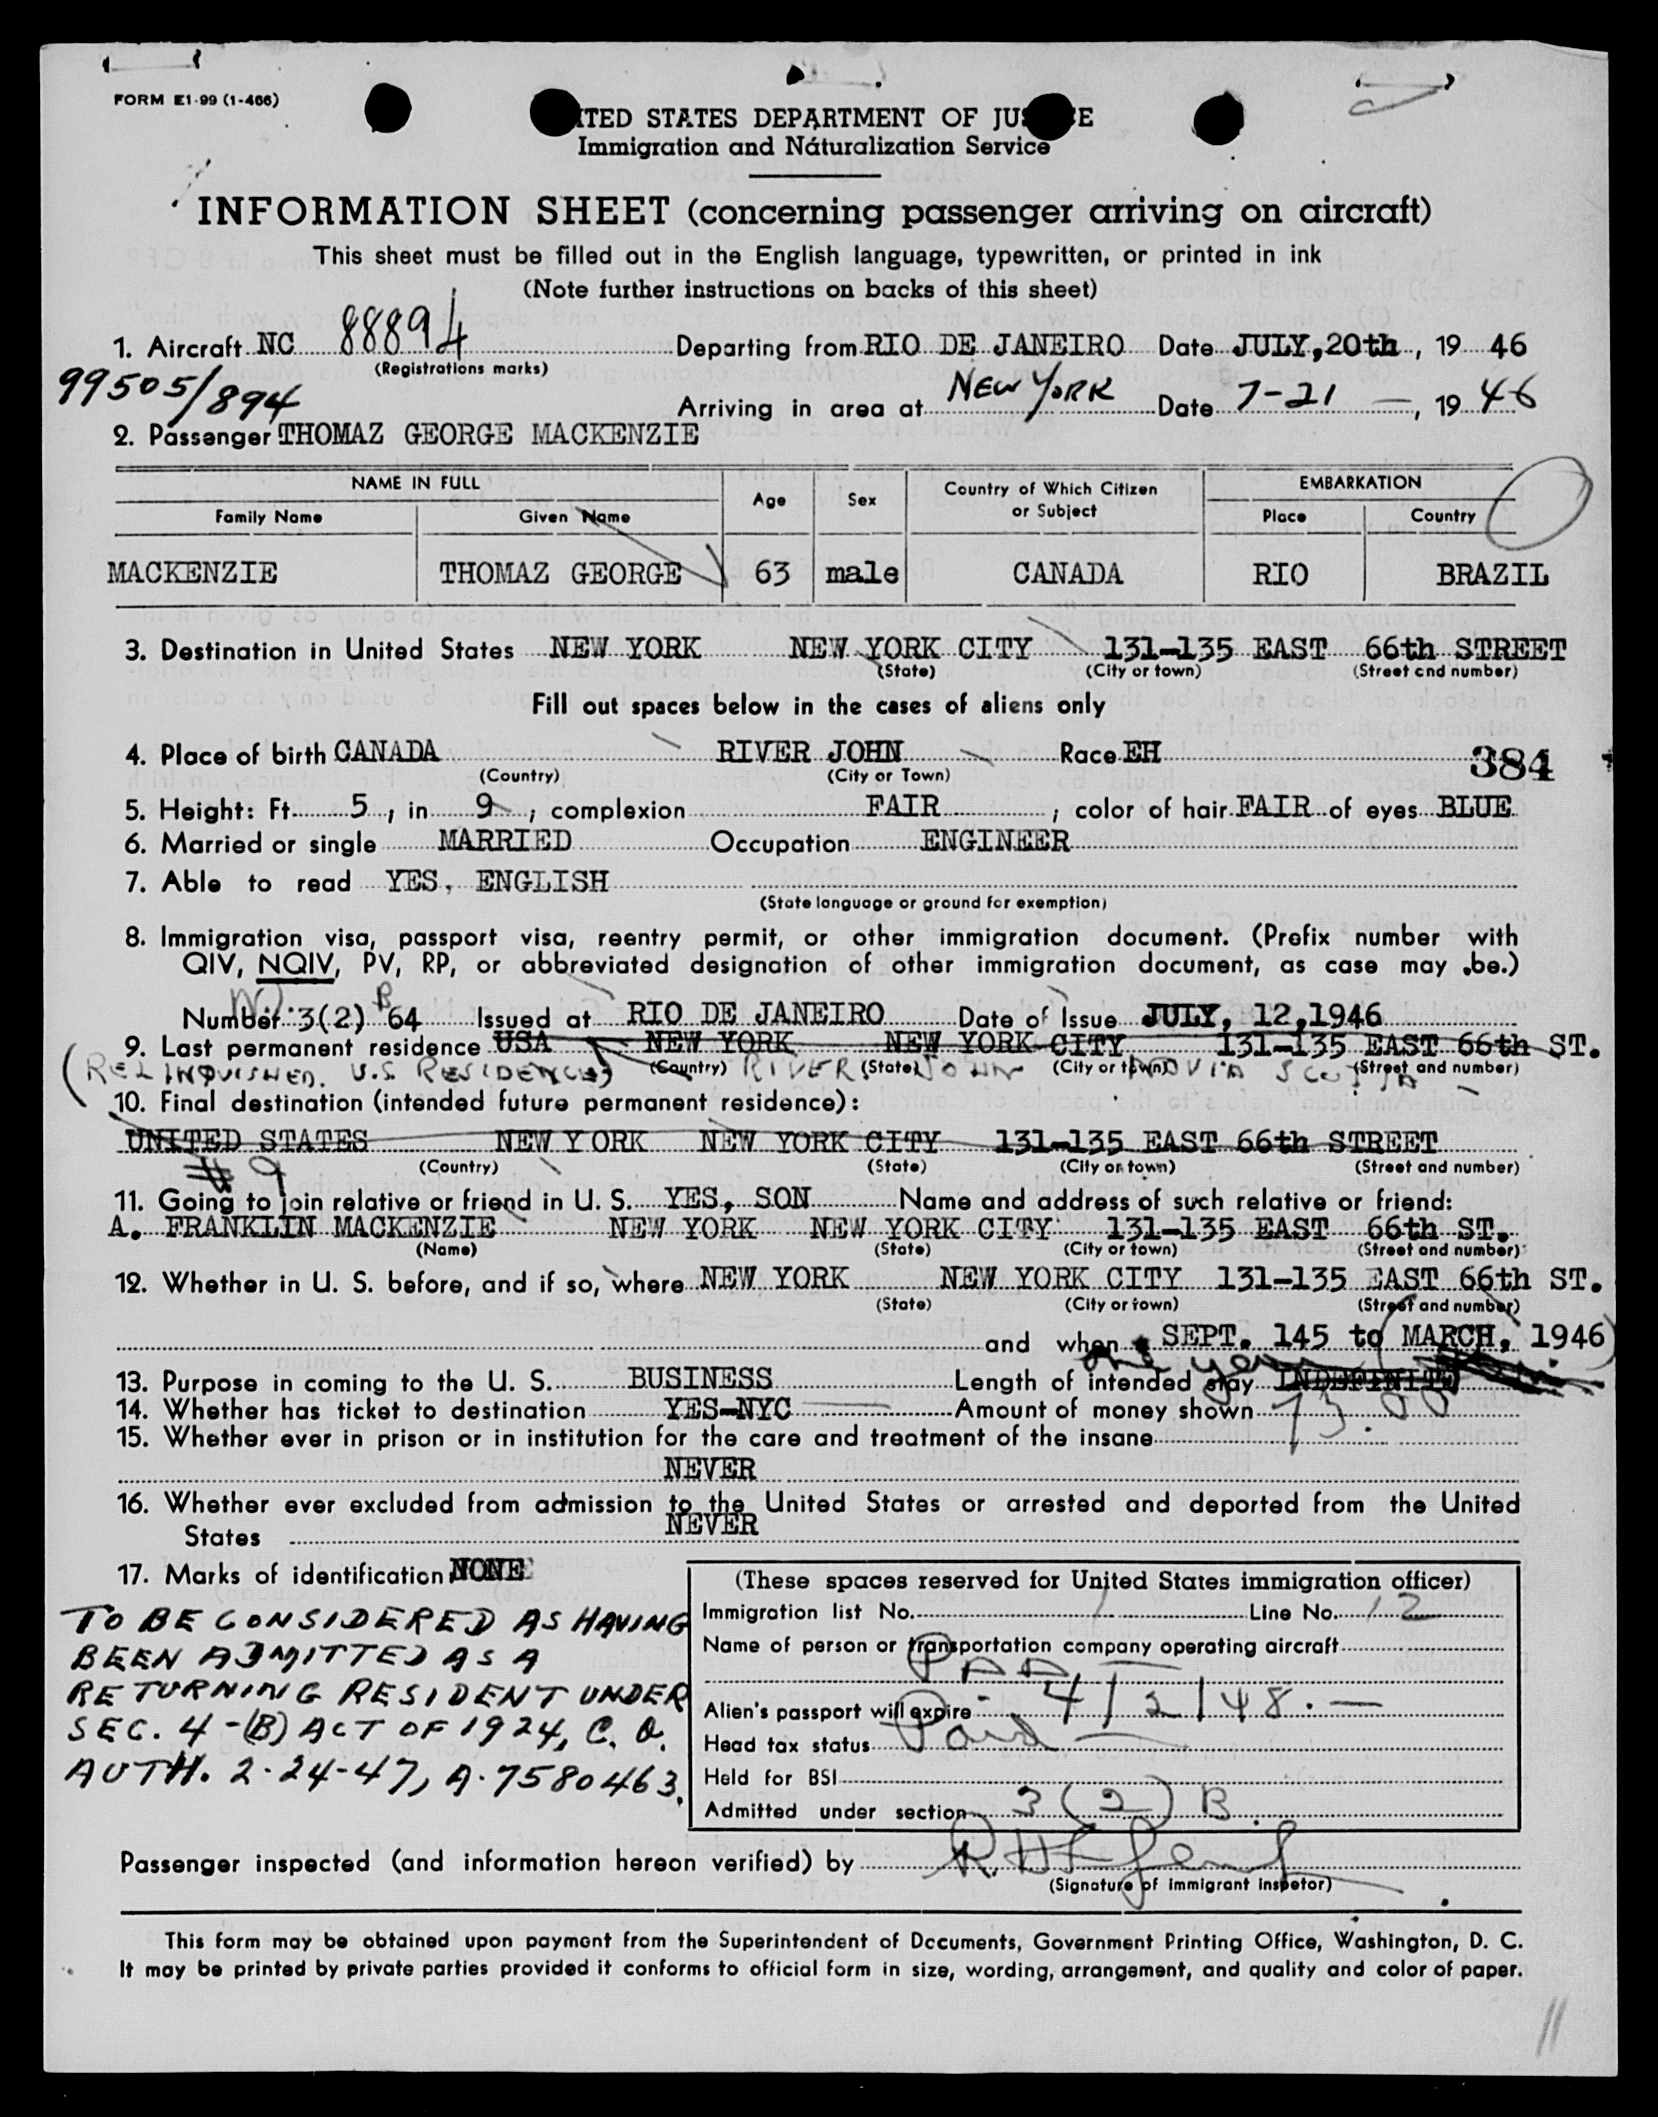 FORM E1-99 (1-466)
ITED STATES DEPARTMENT OF JUS E
Immigration and Naturalization Service
INFORMATION SHEET (concerning passenger arriving on aircraft)
This sheet must be filled out in the English language, typewritten, or printed in ink
(Note further instructions on backs of this sheet)
1. Aircraft NC 88894 Departing from RIO DE JANEIRO Date JULY, 20th, 19 46
(Registrations marks)
99505/894 Arriving in area at NEW YORK Date 7-21 —, 19 46
2. Passenger THOMAZ GEORGE MACKENZIE
NAME IN FULL Age Sex Country of Which Citizen or Subject EMBARKATION
Family Name Given Name Place Country
MACKENZIE THOMAZ GEORGE 63 male CANADA RIO BRAZIL
3. Destination in United States NEW YORK NEW YORK CITY 131-135 EAST 66th STREET
(State) (City or town) (Street and number)
Fill out spaces below in the cases of aliens only
4. Place of birth CANADA RIVER JOHN Race EH 384
(Country) (City or Town)
5. Height: Ft. 5, in 9; complexion FAIR; color of hair FAIR of eyes BLUE
6. Married or single MARRIED Occupation ENGINEER
7. Able to read YES, ENGLISH
(State language or ground for exemption)
8. Immigration visa, passport visa, reentry permit, or other immigration document. (Prefix number with
QIV, NQIV, PV, RP, or abbreviated designation of other immigration document, as case may be.)
Number 3(2) B 64 Issued at RIO DE JANEIRO Date of Issue JULY, 12, 1946
9. Last permanent residence USA NEW YORK NEW YORK CITY 131-135 EAST 66th ST.
(RELINQUISHED. U.S. RESIDENCE) (Country) RIVER (State) JOHN (City or town) NOVIA SCOTIA (Street and number)
10. Final destination (intended future permanent residence):
UNITED STATES NEW YORK NEW YORK CITY 131-135 EAST 66th STREET
# 9 (Country) (State) (City or town) (Street and number)
11. Going to join relative or friend in U. S. YES, SON Name and address of such relative or friend:
A. FRANKLIN MACKENZIE NEW YORK NEW YORK CITY 131-135 EAST 66th ST.
(Name) (State) (City or town) (Street and number)
12. Whether in U. S. before, and if so, where NEW YORK NEW YORK CITY 131-135 EAST 66th ST.
(State) (City or town) (Street and number)
and when SEPT. 145 to (MARCH, 1946)
one year
13. Purpose in coming to the U. S. BUSINESS Length of intended stay INDEFINITE
14. Whether has ticket to destination YES-NYC Amount of money shown 73.00
15. Whether ever in prison or in institution for the care and treatment of the insane
NEVER
16. Whether ever excluded from admission to the United States or arrested and deported from the United
States NEVER
17. Marks of identification NONE
(These spaces reserved for United States immigration officer)
Immigration list No. 1 Line No. 12
Name of person or transportation company operating aircraft
PAA
Alien's passport will expire 4/2/48. —
Head tax status Paid
Held for BSI
Admitted under section 3 (2) B
TO BE CONSIDERED AS HAVING
BEEN ADMITTED AS A
RETURNING RESIDENT UNDER
SEC. 4-(B) ACT OF 1924, C. O.
AUTH. 2-24-47, A-7580463.
Passenger inspected (and information hereon verified) by
(Signature of immigrant inspetor)
This form may be obtained upon payment from the Superintendent of Documents, Government Printing Office, Washington, D. C.
It may be printed by private parties provided it conforms to official form in size, wording, arrangement, and quality and color of paper.
11